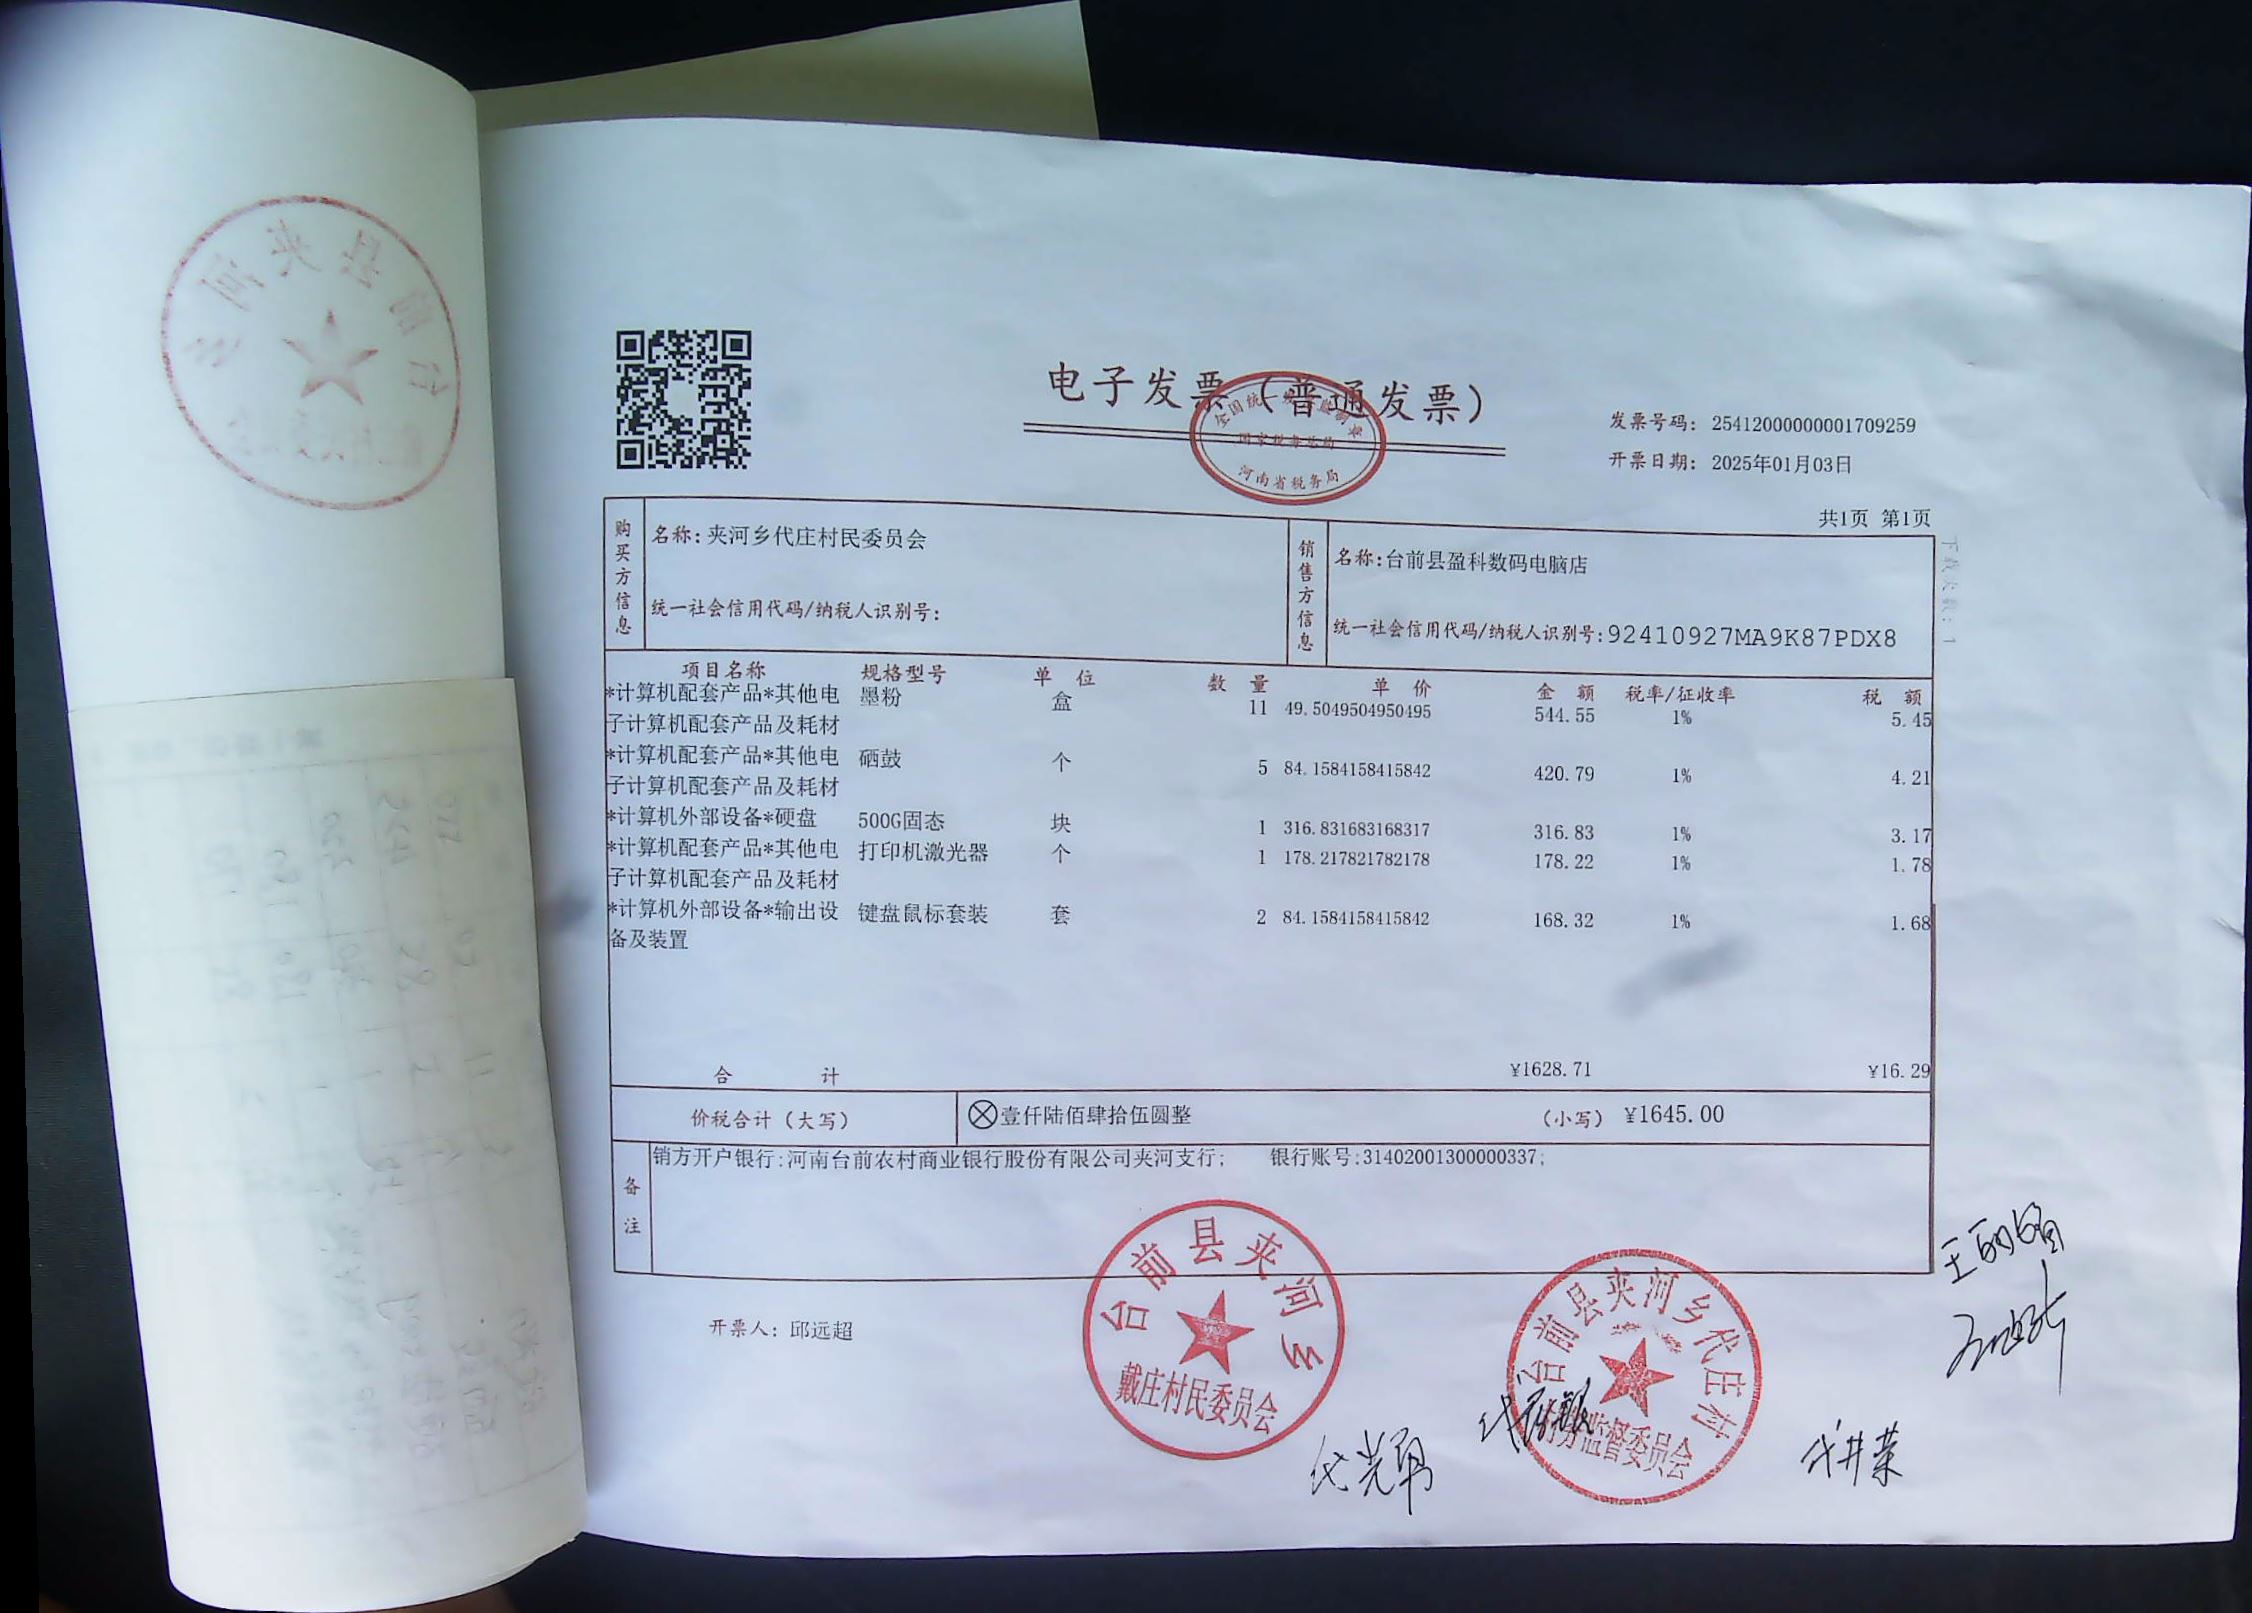 电子发票（普通发票）
全国统一发票监制章
国家税务总局
河南省税务局
发票号码：25412000000001709259
开票日期：2025年01月03日
共1页 第1页
下载次数：1
购买方信息
名称：夹河乡代庄村民委员会
统一社会信用代码/纳税人识别号：
销售方信息
名称：台前县盈科数码电脑店
统一社会信用代码/纳税人识别号：92410927MA9K87PDX8
项目名称 规格型号 单 位 数 量 单 价 金 额 税率/征收率 税 额
*计算机配套产品*其他电 墨粉 盒 11 49.5049504950495 544.55 1% 5.45
子计算机配套产品及耗材
*计算机配套产品*其他电 硒鼓 个 5 84.1584158415842 420.79 1% 4.21
子计算机配套产品及耗材
*计算机外部设备*硬盘 500G固态 块 1 316.831683168317 316.83 1% 3.17
*计算机配套产品*其他电 打印机激光器 个 1 178.217821782178 178.22 1% 1.78
子计算机配套产品及耗材
*计算机外部设备*输出设 键盘鼠标套装 套 2 84.1584158415842 168.32 1% 1.68
备及装置
合 计 ¥1628.71 ¥16.29
价税合计（大写） ⊗壹仟陆佰肆拾伍圆整 （小写）¥1645.00
备注
销方开户银行:河南台前农村商业银行股份有限公司夹河支行; 银行账号:31402001300000337;
开票人：邱远超
台前县夹河乡
戴庄村民委员会
台前县夹河乡代庄村
村务监督委员会
代光勇
代井荣